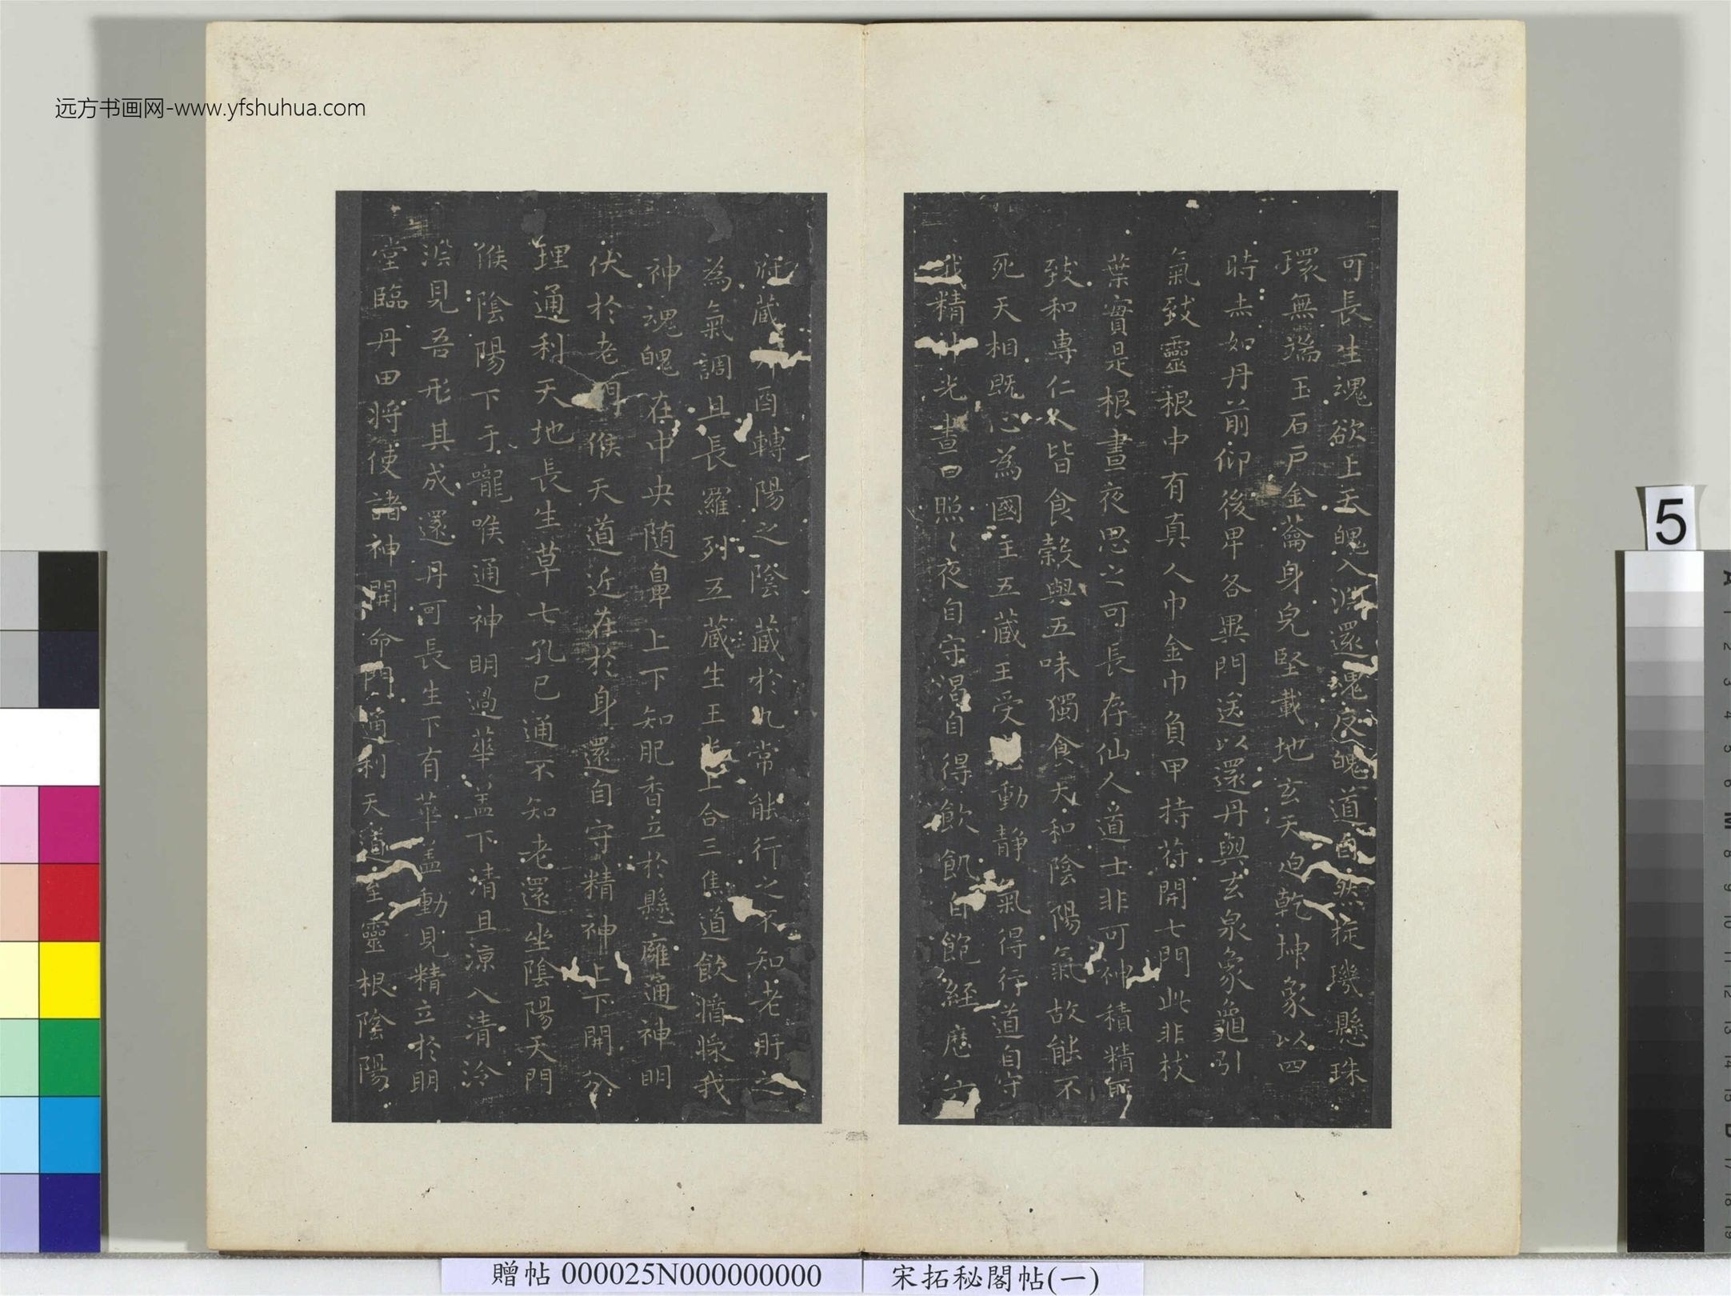 远方书画网-www.yfshuhua.com
可長生魂欲上天魄入淵還魂反魄道自然㨁璣懸珠
環無端玉石戶金籥身皃堅載地玄天迫乾坤象以四
時赤如丹前仰後卑各異門送以還丹與玄泉象龜引
氣致靈根中有真人巾金巾負甲持苻開七門此非枝
葉實是根晝夜思之可長存仙人道士非可神積精所
致和專仁人皆食穀與五味獨食天和陰陽氣故能不
死天相既心為國主五藏王受動靜氣得行道自守
我精神光晝日照〻夜自守渴自得飲飢自飽經歷六
府藏卯酉轉陽之陰藏於九常能行之不知老肝之
為氣調且長羅列五藏生三光上合三焦道飲醬漿我
神魂魄在中央随鼻上下知肥香立於懸廱通神明
伏於老門候天道近在於身還自守精神上下開分
理通利天地長生草七孔已通不知老還坐陰陽天門
候陰陽下于嚨喉通神明過華蓋下清且涼入清泠
淵見吾形其成還丹可長生下有華盖動見精立於明
堂臨丹田將使諸神開命門通利天道至靈根陰陽
贈帖 000025N000000000
宋拓秘閣帖(一)
5